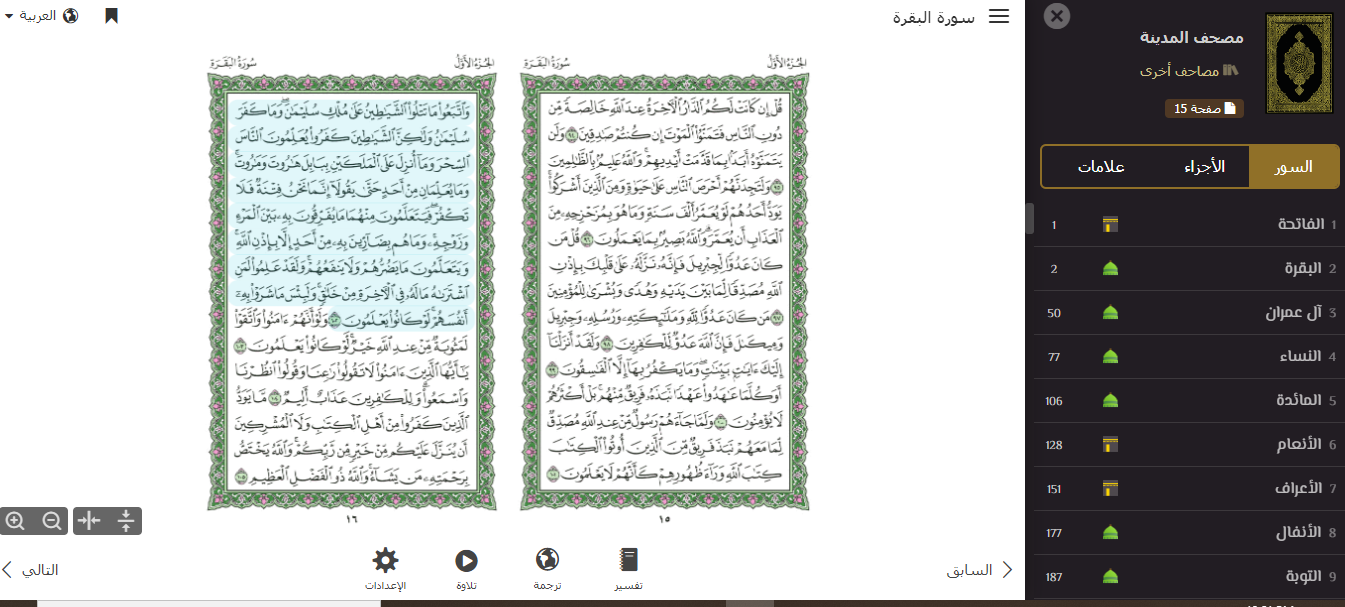 مصحف المدينة
مصاحف أخرى
صفحة 15
السور
الأجزاء
علامات
1 الفاتحة 1
2 البقرة 2
3 آل عمران 50
4 النساء 77
5 المائدة 106
6 الأنعام 128
7 الأعراف 151
8 الأنفال 177
9 التوبة 187
سورة البقرة
العربية
الجزء الأول
سورة البقرة
قُلْ إِن كَانَتْ لَكُمُ الدَّارُ الْآخِرَةُ عِندَ اللَّهِ خَالِصَةً مِّن
دُونِ النَّاسِ فَتَمَنَّوُا الْمَوْتَ إِن كُنتُمْ صَادِقِينَ ٩٤ وَلَن
يَتَمَنَّوْهُ أَبَدًا بِمَا قَدَّمَتْ أَيْدِيهِمْ وَاللَّهُ عَلِيمٌ بِالظَّالِمِينَ
٩٥ وَلَتَجِدَنَّهُمْ أَحْرَصَ النَّاسِ عَلَىٰ حَيَاةٍ وَمِنَ الَّذِينَ أَشْرَكُوا
يَوَدُّ أَحَدُهُمْ لَوْ يُعَمَّرُ أَلْفَ سَنَةٍ وَمَا هُوَ بِمُزَحْزِحِهِ مِنَ
الْعَذَابِ أَن يُعَمَّرَ وَاللَّهُ بَصِيرٌ بِمَا يَعْمَلُونَ ٩٦ قُلْ مَن
كَانَ عَدُوًّا لِّجِبْرِيلَ فَإِنَّهُ نَزَّلَهُ عَلَىٰ قَلْبِكَ بِإِذْنِ
اللَّهِ مُصَدِّقًا لِّمَا بَيْنَ يَدَيْهِ وَهُدًى وَبُشْرَىٰ لِلْمُؤْمِنِينَ
٩٧ مَن كَانَ عَدُوًّا لِّلَّهِ وَمَلَائِكَتِهِ وَرُسُلِهِ وَجِبْرِيلَ
وَمِيكَالَ فَإِنَّ اللَّهَ عَدُوٌّ لِّلْكَافِرِينَ ٩٨ وَلَقَدْ أَنزَلْنَا
إِلَيْكَ آيَاتٍ بَيِّنَاتٍ وَمَا يَكْفُرُ بِهَا إِلَّا الْفَاسِقُونَ ٩٩
أَوَكُلَّمَا عَاهَدُوا عَهْدًا نَّبَذَهُ فَرِيقٌ مِّنْهُم بَلْ أَكْثَرُهُمْ
لَا يُؤْمِنُونَ ١٠٠ وَلَمَّا جَاءَهُمْ رَسُولٌ مِّنْ عِندِ اللَّهِ مُصَدِّقٌ
لِّمَا مَعَهُمْ نَبَذَ فَرِيقٌ مِّنَ الَّذِينَ أُوتُوا الْكِتَابَ
كِتَابَ اللَّهِ وَرَاءَ ظُهُورِهِمْ كَأَنَّهُمْ لَا يَعْلَمُونَ ١٠١
١٥
الجزء الأول
سورة البقرة
وَاتَّبَعُوا مَا تَتْلُو الشَّيَاطِينُ عَلَىٰ مُلْكِ سُلَيْمَانَ وَمَا كَفَرَ
سُلَيْمَانُ وَلَٰكِنَّ الشَّيَاطِينَ كَفَرُوا يُعَلِّمُونَ النَّاسَ
السِّحْرَ وَمَا أُنزِلَ عَلَى الْمَلَكَيْنِ بِبَابِلَ هَارُوتَ وَمَارُوتَ
وَمَا يُعَلِّمَانِ مِنْ أَحَدٍ حَتَّىٰ يَقُولَا إِنَّمَا نَحْنُ فِتْنَةٌ فَلَا
تَكْفُرْ فَيَتَعَلَّمُونَ مِنْهُمَا مَا يُفَرِّقُونَ بِهِ بَيْنَ الْمَرْءِ
وَزَوْجِهِ وَمَا هُم بِضَارِّينَ بِهِ مِنْ أَحَدٍ إِلَّا بِإِذْنِ اللَّهِ
وَيَتَعَلَّمُونَ مَا يَضُرُّهُمْ وَلَا يَنفَعُهُمْ وَلَقَدْ عَلِمُوا لَمَنِ
اشْتَرَاهُ مَا لَهُ فِي الْآخِرَةِ مِنْ خَلَاقٍ وَلَبِئْسَ مَا شَرَوْا بِهِ
أَنفُسَهُمْ لَوْ كَانُوا يَعْلَمُونَ ١٠٢ وَلَوْ أَنَّهُمْ آمَنُوا وَاتَّقَوْا
لَمَثُوبَةٌ مِّنْ عِندِ اللَّهِ خَيْرٌ لَّوْ كَانُوا يَعْلَمُونَ ١٠٣
يَا أَيُّهَا الَّذِينَ آمَنُوا لَا تَقُولُوا رَاعِنَا وَقُولُوا انظُرْنَا
وَاسْمَعُوا وَلِلْكَافِرِينَ عَذَابٌ أَلِيمٌ ١٠٤ مَّا يَوَدُّ
الَّذِينَ كَفَرُوا مِنْ أَهْلِ الْكِتَابِ وَلَا الْمُشْرِكِينَ
أَن يُنَزَّلَ عَلَيْكُم مِّنْ خَيْرٍ مِّن رَّبِّكُمْ وَاللَّهُ يَخْتَصُّ
بِرَحْمَتِهِ مَن يَشَاءُ وَاللَّهُ ذُو الْفَضْلِ الْعَظِيمِ ١٠٥
١٦
السابق
تفسير
ترجمة
تلاوة
الإعدادات
التالي